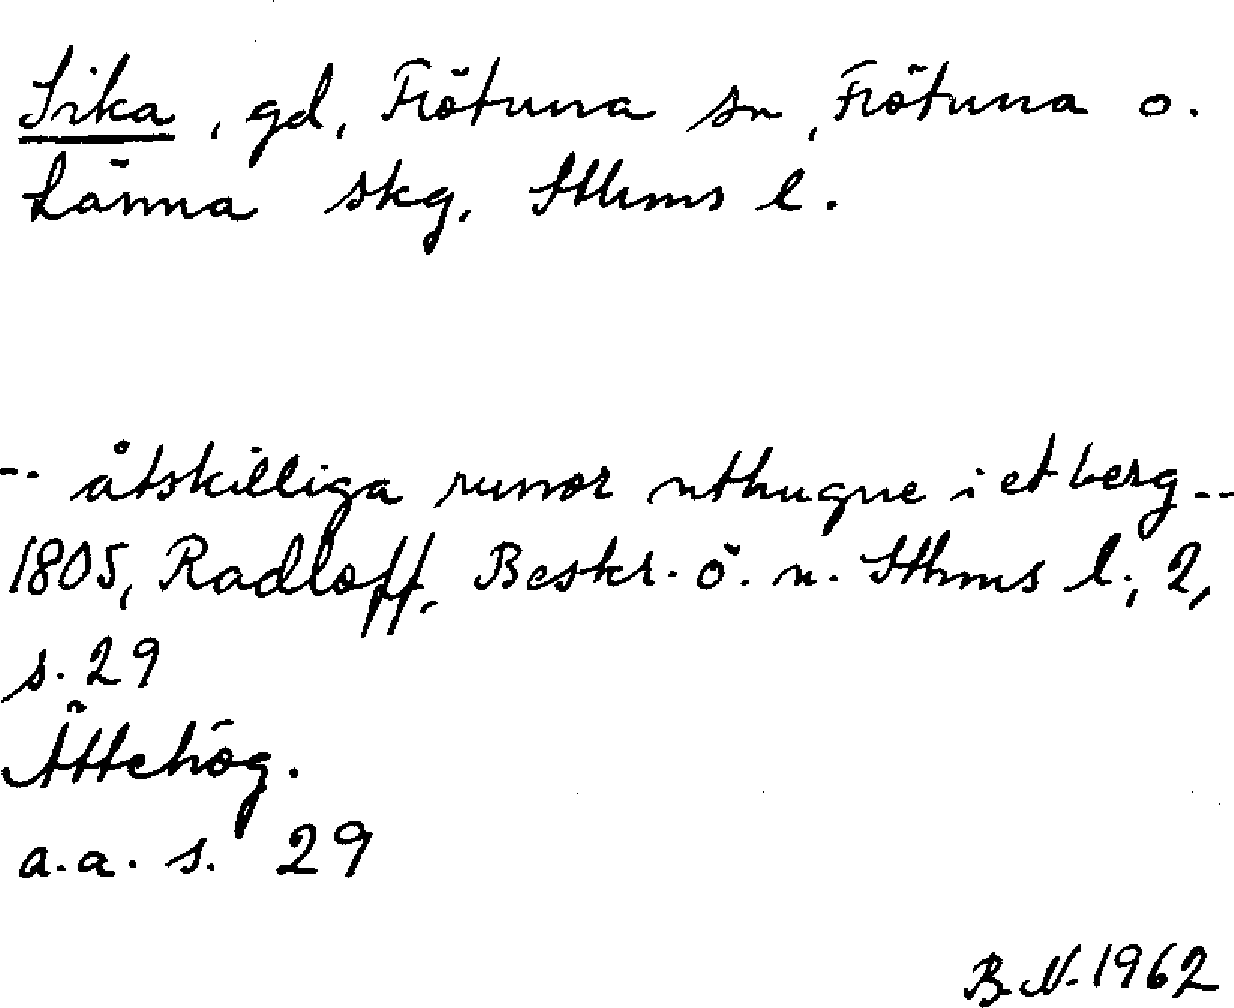 Sika, gd, Frötuna sn, Frötuna o.
Länna skg, Sthms l.
-- åtskilliga runor uthugne i et berg --
1805, Radloff, Beskr. ö. n. Sthms l., 2,
s. 29
Ättehög.
a.a. s. 29
B.N. 1962